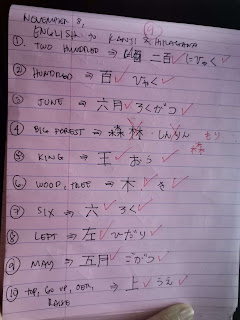 NOVEMBER 8,
ENGLISH to KANJI & HIRAGANA
①. TWO HUNDRED ⇒ 二百 にひゃく
② HUNDRED ⇒ 百 ひゃく
③ JUNE ⇒ 六月 ろくがつ
④ BIG FOREST ⇒ 森林 しんりん もり
森
⑤ KING ⇒ 王 おう
⑥ WOOD, TREE ⇒ 木 き
⑦ SIX ⇒ 六 ろく
⑧ LEFT ⇒ 左 ひだり
⑨ MAY ⇒ 五月 ごがつ
⑩ TOP, GO UP, OVER, ⇒ 上 うえ
RAISE